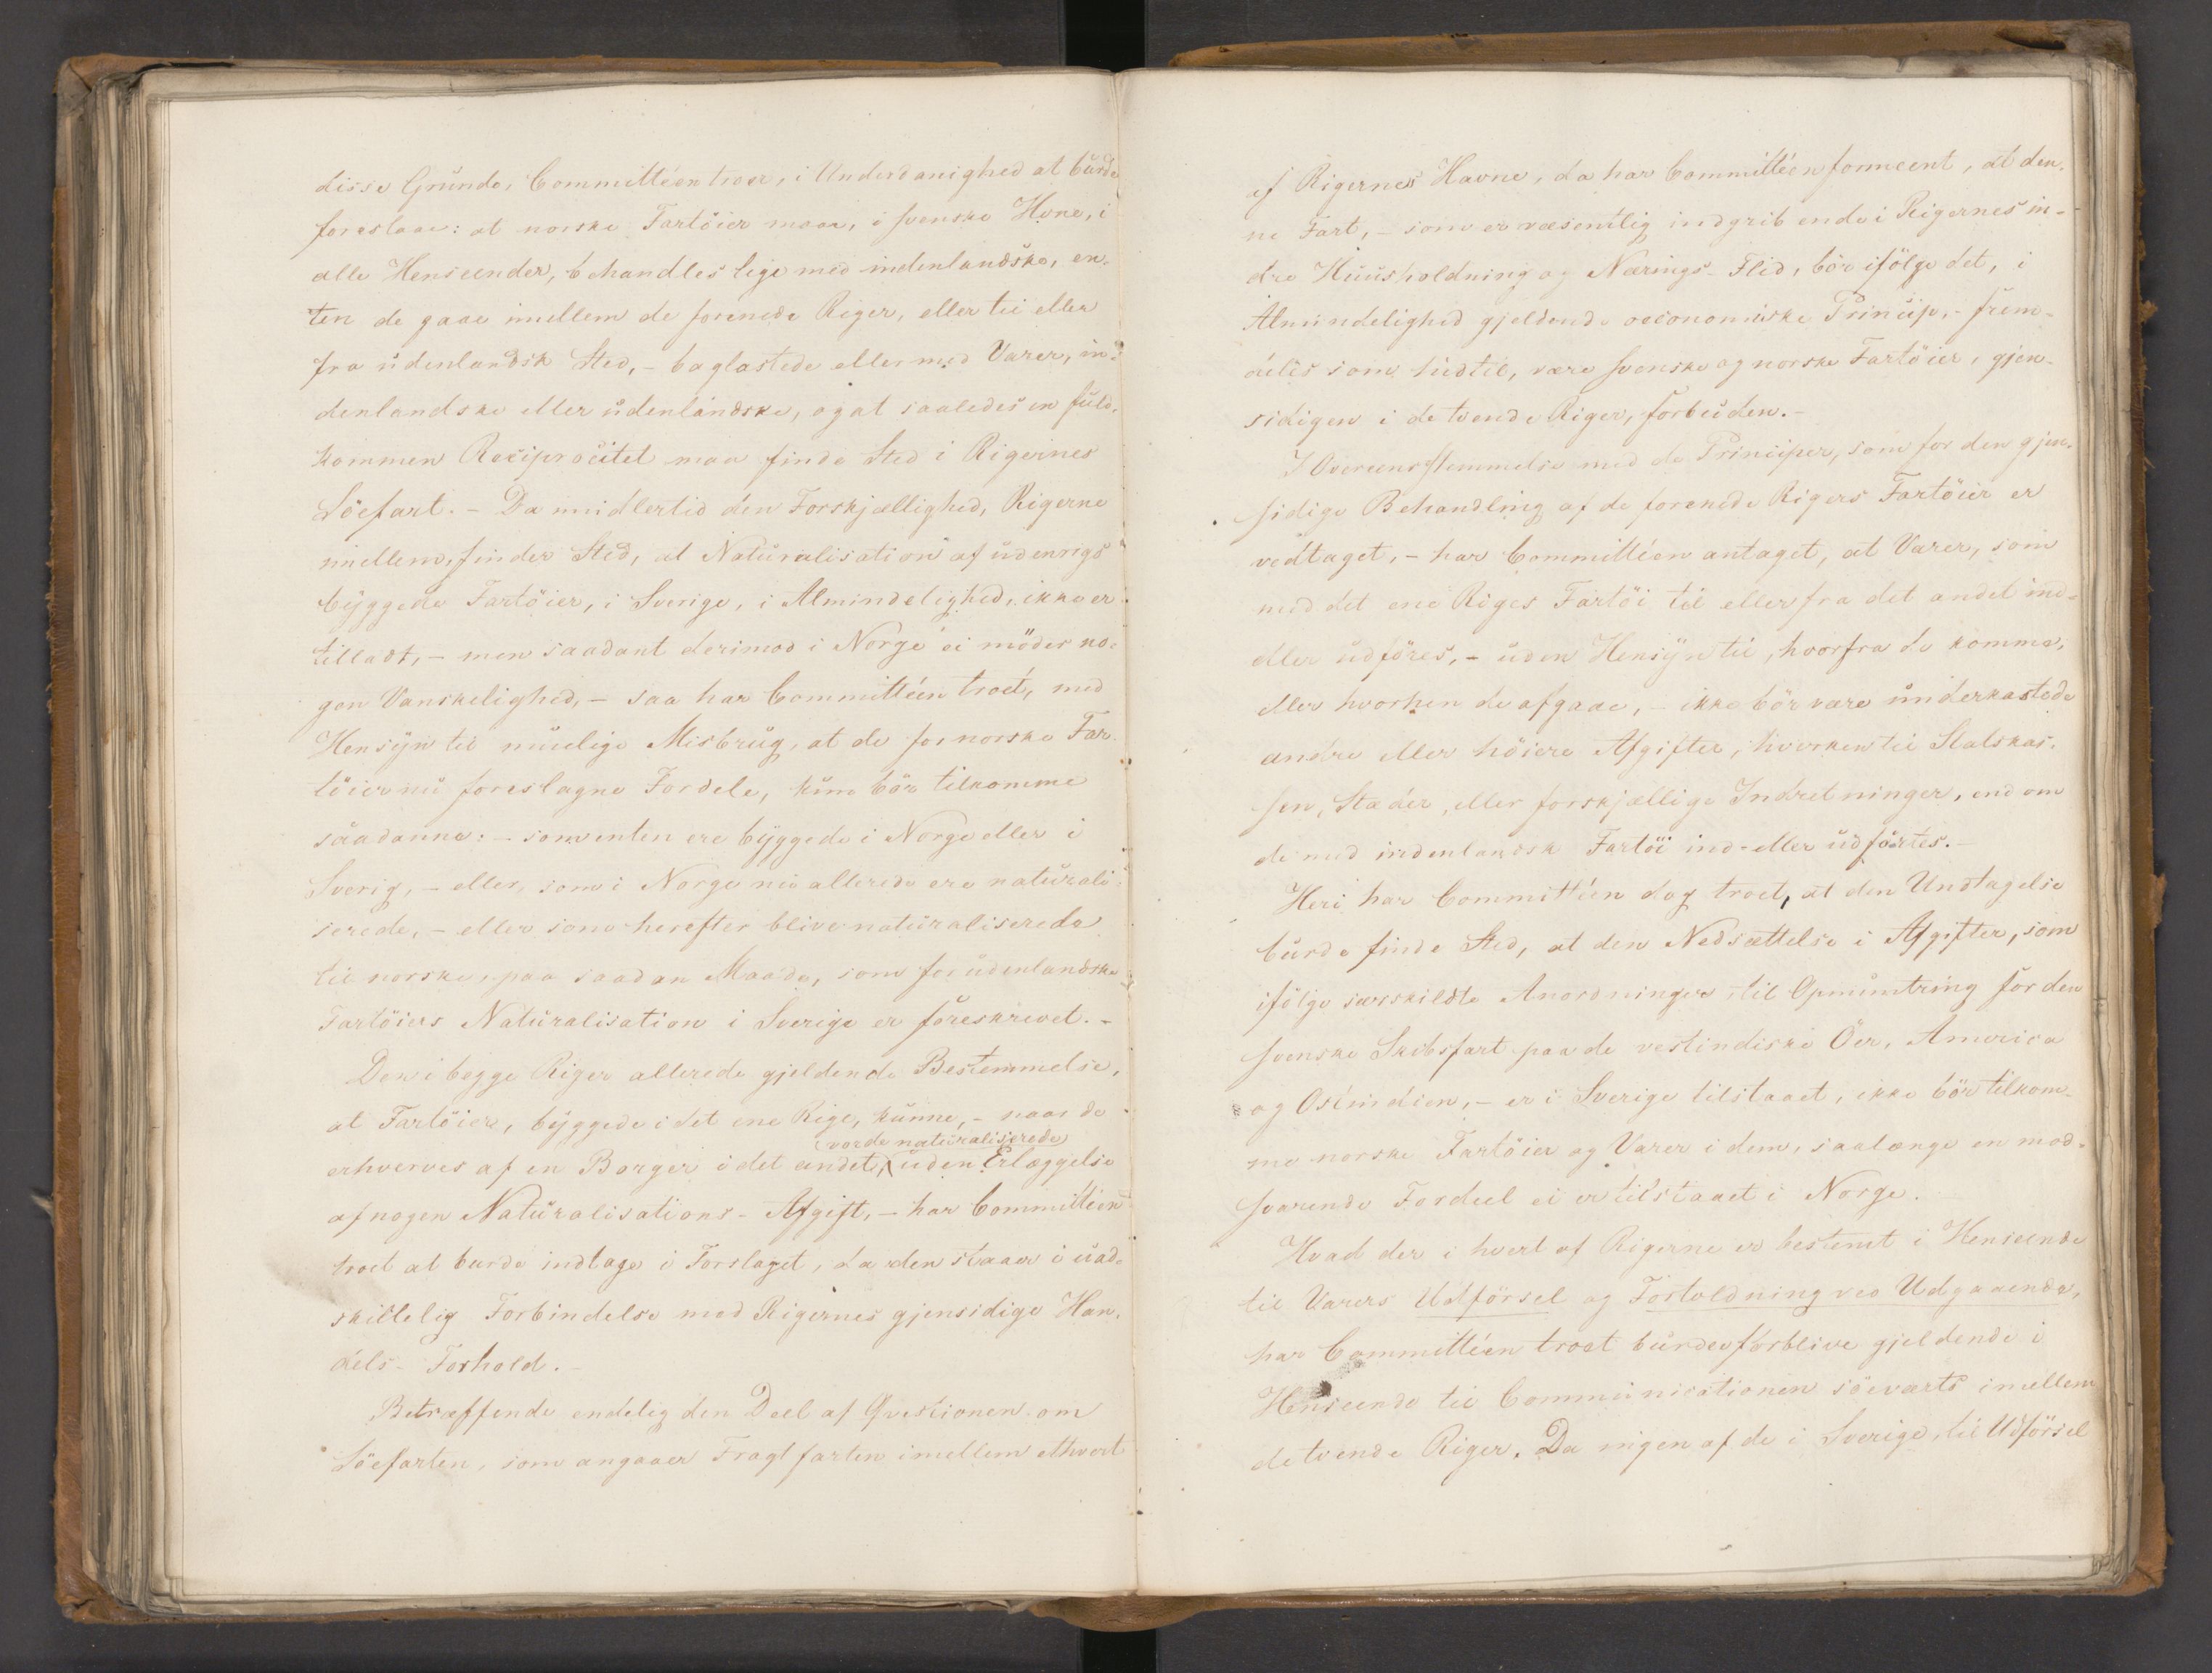 disse Grunde, Committéen troer, i Underdanighed at burde
foreslaae: at norske Fartöier maae, i svenske Hvne, i
alle Henseender, behandles lige med indenlandske, en-
ten de gaae imellem de forenede Riger, eller til eller
fra udenlandsk Sted, – baglastede eller med Varer, in-
denlandske eller udenlandske, og at saaledes en fuld-
kommen Reciprocitet maa finde Sted i Rigernes
Söefart. – Da imidlertid den Forskjællighed, Rigerne
imellem, finder Sted, at Naturalisation af udenrigs
byggede Fartöier, i Sverige, i Almindelighed, ikke er
tilladt, – men saadant derimod i Norge ei möder no-
gen Vanskelighed, – saa har Committéen troet, med
Hensyn til muelige Misbrug, at de for norske Far-
töier nu foreslagne Fordele, kun bör tilkomme
saadanne: – som enten ere byggede i Norge eller i
Sverig, – eller, som i Norge nu allerede ere naturali-
serede, – eller som herefter blive naturaliserede
til norske, paa saadan Maade, som for udenlandske
Fartöiers Naturalisation i Sverige er foreskrevet. –
Den i begge Riger allerede gjeldende Bestemmelse,
at Fartöier, byggede i det ene Rige, kunne, – naar de
vorde naturaliserede
erhverves af en Borger i det andet, uden Erlæggelse
af nogen Naturalisations-Afgift, – har Committéen
troet at burde indtage i Forslaget, da den staaer i uad-
skillelig Forbindelse med Rigernes gjensidige Han-
dels-Forhold. –
Betræffende endelig den Deel af Qvestionen om
Söefarten, som angaaer Fragtfarten imellem ethvert
af Rigernes Havne, da har Committéen formeent, at den-
ne Fart, – som er væsentlig indgribende i Rigernes in-
dre Huusholdning og Nærings-Flid, bör ifölge det, i
Almindelighed gjeldende oeconomiske Princip, – frem-
deles som hidtil, være svenske og norske Fartöier, gjen-
sidigen i de tvende Riger, forbuden. –
I Overeensstemmelse med de Principer, som for den gjen-
sidige Behandling af de forenede Rigers Fartöier er
vedtaget, – har Committéen antaget, at Varer, som
med det ene Riges Fartöi til eller fra det andet ind-
eller udföres, – uden Hensyn til, hvorfra de komme,
eller hvorhen de afgaae, – ikke bör være underkastede
andre eller höiere Afgifter, hverken til Statskas-
sen, Stæder, eller forskjællige Indretninger, end om
de med indenlandsk Fartöi ind- eller udförtes. –
Heri har Committéen dog troet, at den Undtagelse
burde finde Sted, at den Nedsættelse i Afgifter, som
ifölge særskildte Anordninger, til Opmuntring for den
svenske Skibsfart paa de vestindiske Öer, America
og Ostindien, – er i Sverige tilstaaet, ikke bör tilkom-
me norske Fartöier og Varer i dem, saalænge en mod-
svarende Fordeel ei er tilstaaet i Norge.
Hvad der i hvert af Rigerne er bestemt i Henseende
til Varers Udförsel og Fortoldning ved Udgaaende,
har Committéen troet burde forblive gjeldende i
Henseende til Communicationen söeværts imellem
de tvende Riger. Da ingen af de i Sverige, til Udförsel